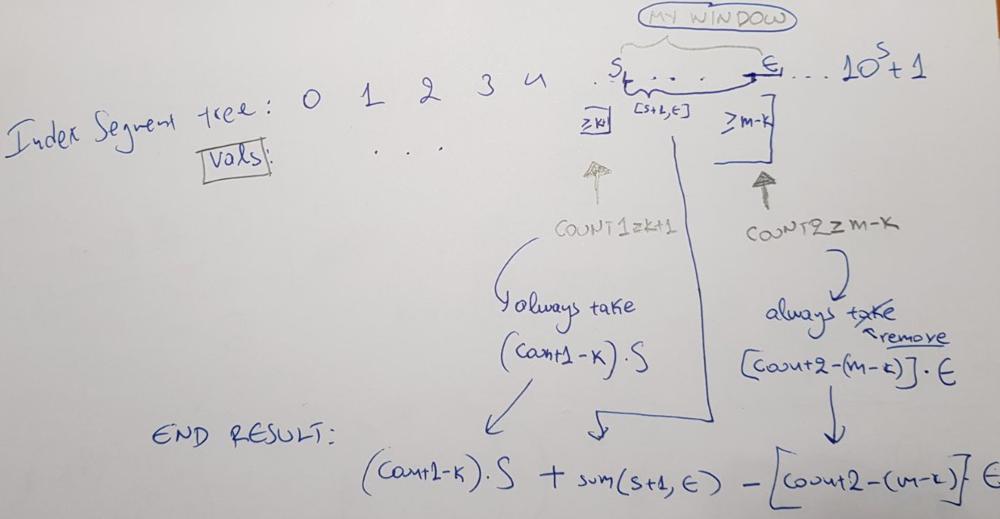 MY WINDOW
Index Segment tree: 0 1 2 3 4 . S . . . E . . . 10^5+1
[S+1,E]
≥k+1 ≥m-k
Vals: . . .
COUNT1≥k+1 COUNT2≥m-k
always take always take
remove
(Count1-k).S [Count2-(m-k)].E
END RESULT:
(Count1-k).S + sum(S+1,E) - [Count2-(m-k)].E